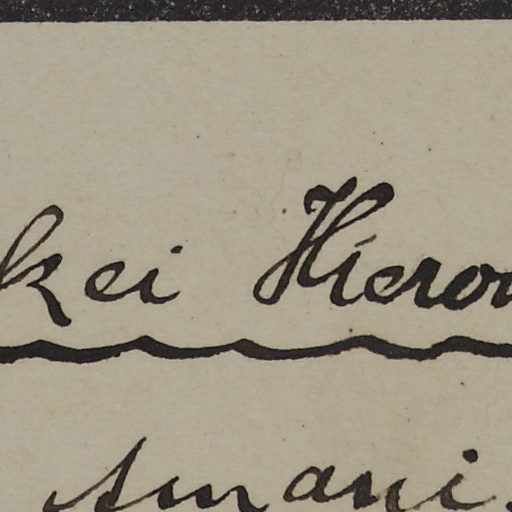 kei Hieron
Amani